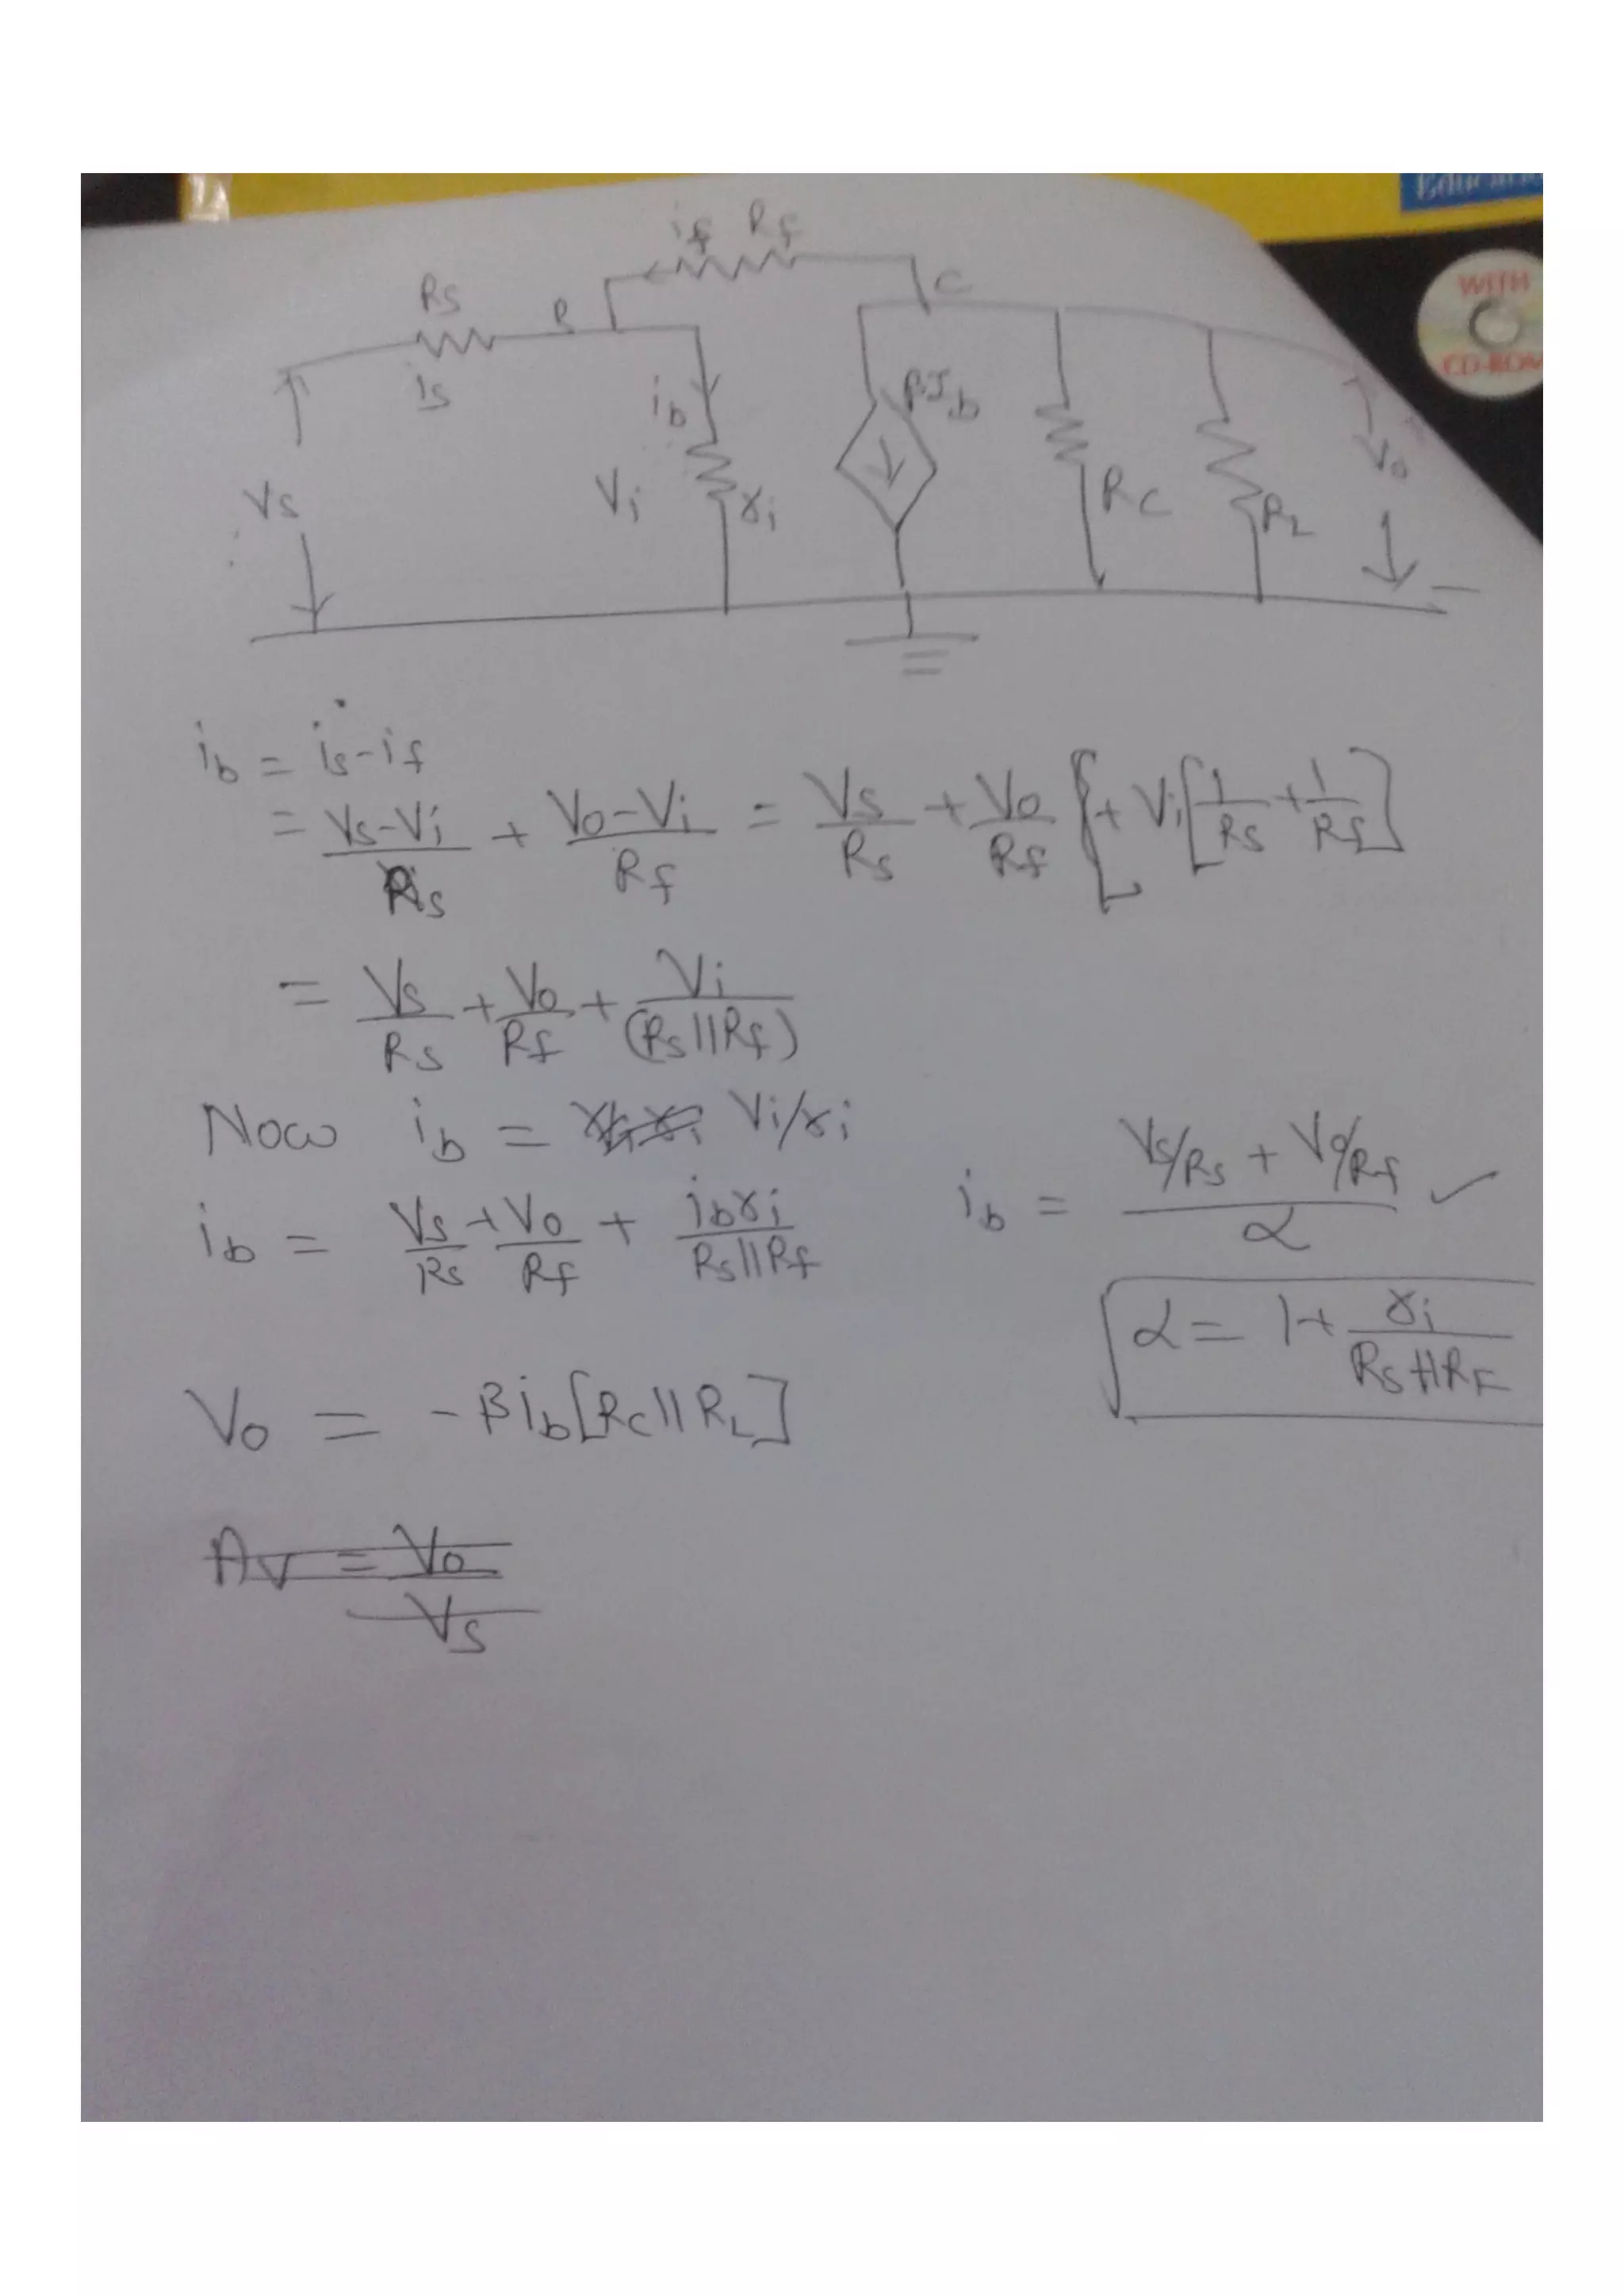 Education
WITH
CD-ROM
if Rf
Rs B C
is ib βIb
Vs Vi ri RC RL Vo
ib = is - if
= Vs-Vi/Rs + Vo-Vi/Rf = Vs/Rs + Vo/Rf [+ Vi[1/Rs + 1/Rf]
= Vs/Rs + Vo/Rf + Vi/(Rs||Rf)
Now ib = Vi/ri
ib = Vs/Rs + Vo/Rf + ibri/Rs||Rf
ib = Vs/Rs + Vo/Rf / α ✓
α = 1+ ri/Rs||RF
Vo = -βib[RC||RL]
AV = Vo/Vs